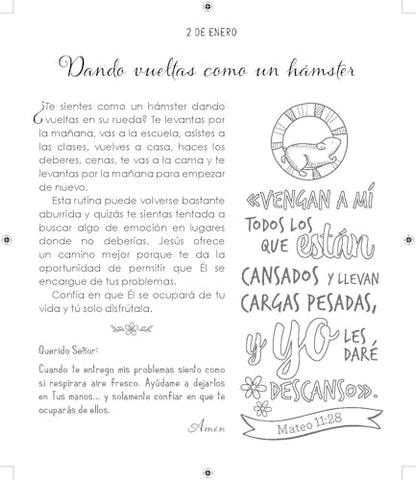 2 DE ENERO
Dando vueltas como un hámster
¿Te sientes como un hámster dando
vueltas en su rueda? Te levantas por
la mañana, vas a la escuela, asistes a
las clases, vuelves a casa, haces los
deberes, cenas, te vas a la cama y te
levantas por la mañana para empezar
de nuevo.
Esta rutina puede volverse bastante
aburrida y quizás te sientas tentada a
buscar algo de emoción en lugares
donde no deberías. Jesús ofrece
un camino mejor porque te da la
oportunidad de permitir que Él se
encargue de tus problemas.
Confía en que Él se ocupará de tu
vida y tú solo disfrútala.
Querido Señor:
Cuando te entrego mis problemas siento como
si respirara aire fresco. Ayúdame a dejarlos
en Tus manos... y solamente confiar en que te
ocuparás de ellos.
Amén
«VENGAN A MÍ
TODOS LOS
QUE están
CANSADOS Y LLEVAN
CARGAS PESADAS,
y yo LES
DARÉ
DESCANSO».
Mateo 11:28